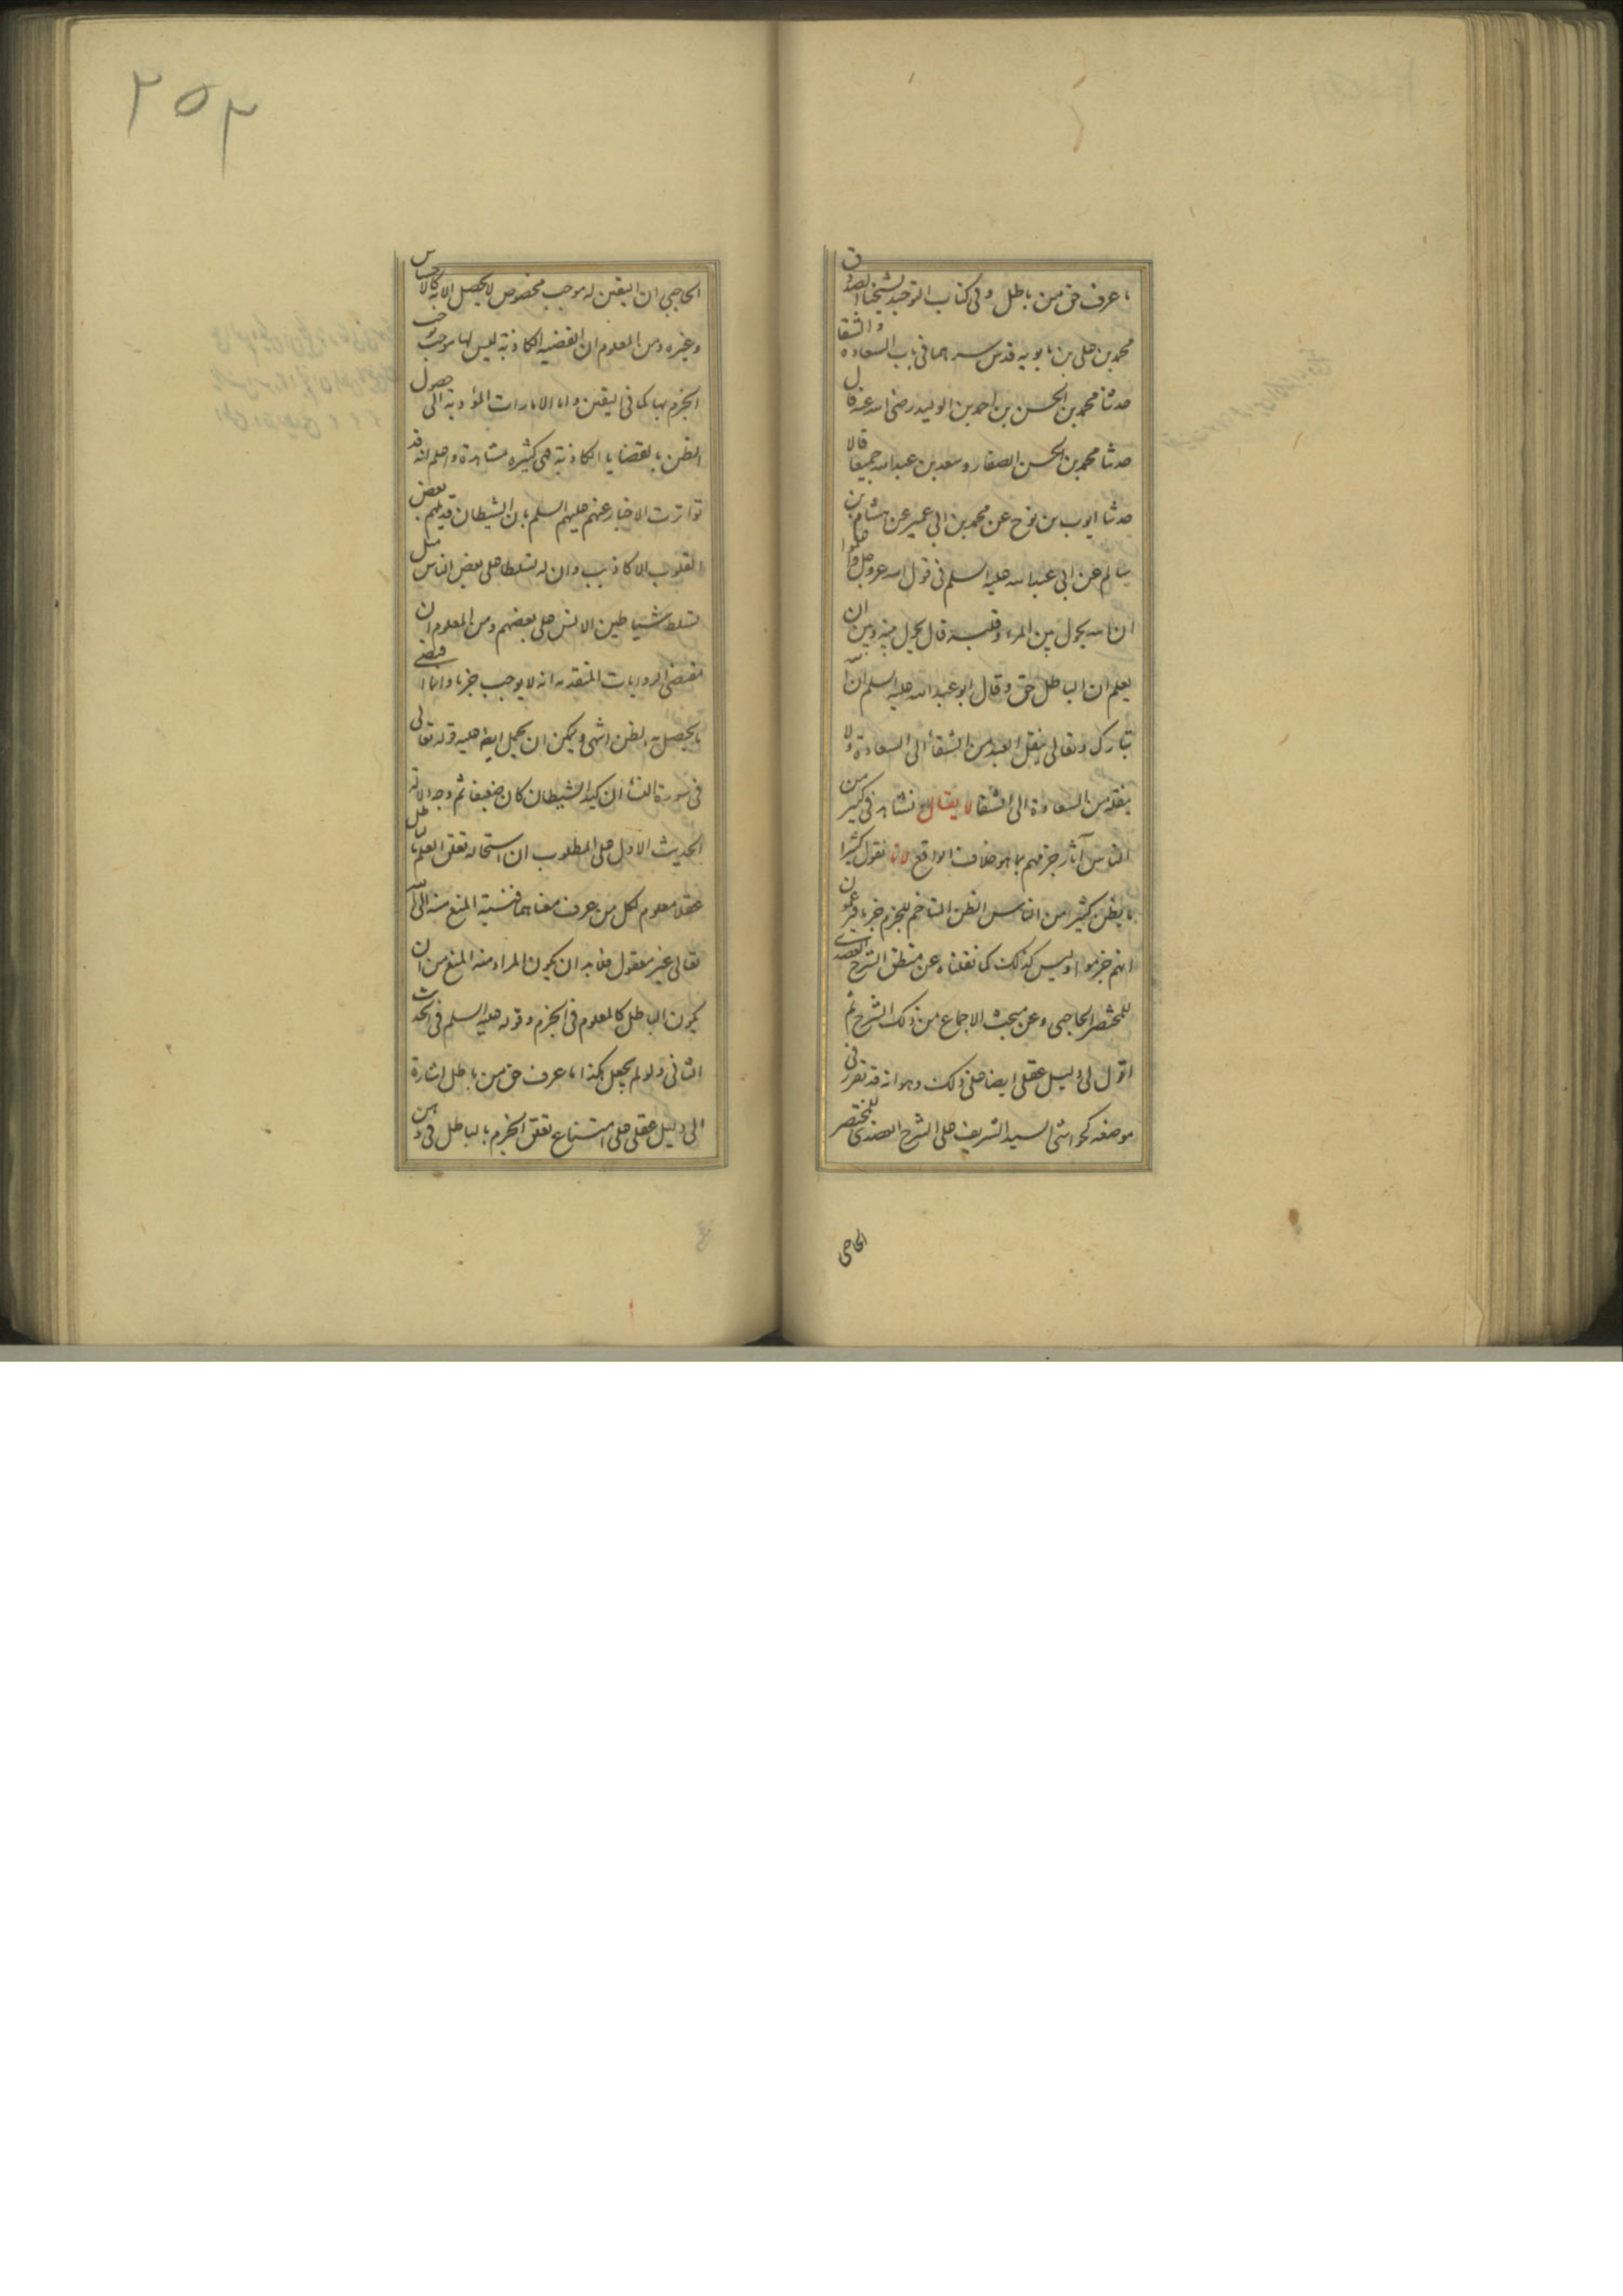 ما عرف حق من باطل وفی کتاب التوحید لشیخنا الصدوق
محمد بن علی بن بابویه قدس سرهما فی باب السعاده والشقا
حدثنا محمد بن الحسن بن احمد بن الولید رضی الله عنه قال
حدثنا محمد بن الحسن الصفار وسعد بن عبدالله جمیعا قالا
حدثنا ایوب بن نوح عن محمد بن ابی عمیر عن هشام بن
سالم عن ابی عبدالله علیه السلم فی قول الله عز وجل واعلموا
ان الله یحول بین المرء وقلبه قال یحول بینه وبین ان
یعلم ان الباطل حق وقال ابو عبدالله علیه السلم ان الله
تبارک وتعالی ینقل العبد من الشقاء الی السعادة ولا
ینقله من السعادة الی الشقا لا یقال نشاهد فی کثیر من
الناس آثار جزمهم بما هو خلاف الواقع لانا نقول کثیرا
ما یظن کثیر من الناس الظن المتاخم للجزم جزما فیزعمون
انهم جزموا ولیس کذلک کما نقلناه عن منطق الشرح العضدی
للمختصر الحاجبی وعن مبحث الاجماع من ذلک الشرح ثم
اقول لی دلیل عقلی ایضا علی ذلک وهو انه قد تقرر فی
موضعه کحواشی السید الشریف علی الشرح العضدی للمختصر
الحاجبی
۲۵۳
الحاجبی ان الیقین له موجب مخصوص لا یحصل الا به کالاحساس
وغیره ومن المعلوم ان القضیه الکاذبة لیس لها موجب یوجب
الجزم بها کما فی الیقین واما الامارات المؤدیة الی حصول
الظن بالقضایا الکاذبة فهی کثیره مشاهدة واعلم انه قد
تواترت الاخبار عنهم علیهم السلم بان الشیطان قد یلهم بعض
القلوب الاکاذیب وان له تسلطا علی بعض الناس مثل
تسلط شیاطین الانس علی بعضهم ومن المعلوم ان
مقتضی الروایات المتقدمه انه لا یوجب جزما وانما اقتضی
ما یحصل به الظن انتهی ویمکن ان یحمل ایضا علیه قوله تعالی
فی سورة النساء ان کید الشیطان کان ضعیفا ثم وجه دلالة
الحدیث الاول علی المطلوب ان استحاله تعلق العلم بالباطل
عقلا معلوم لکل من عرف معناهما فنسبة المنع منه الی الله
تعالی غیر معقول فلابد ان یکون المراد منه المنع من ان
یکون الباطل کالمعلوم فی الجزم وقوله علیه السلم فی الحدیث
الثانی ولو لم یجعل هکذا ما عرف حق من باطل اشارة
الی دلیل عقلی علی امتناع تعلق الجزم بالباطل فی